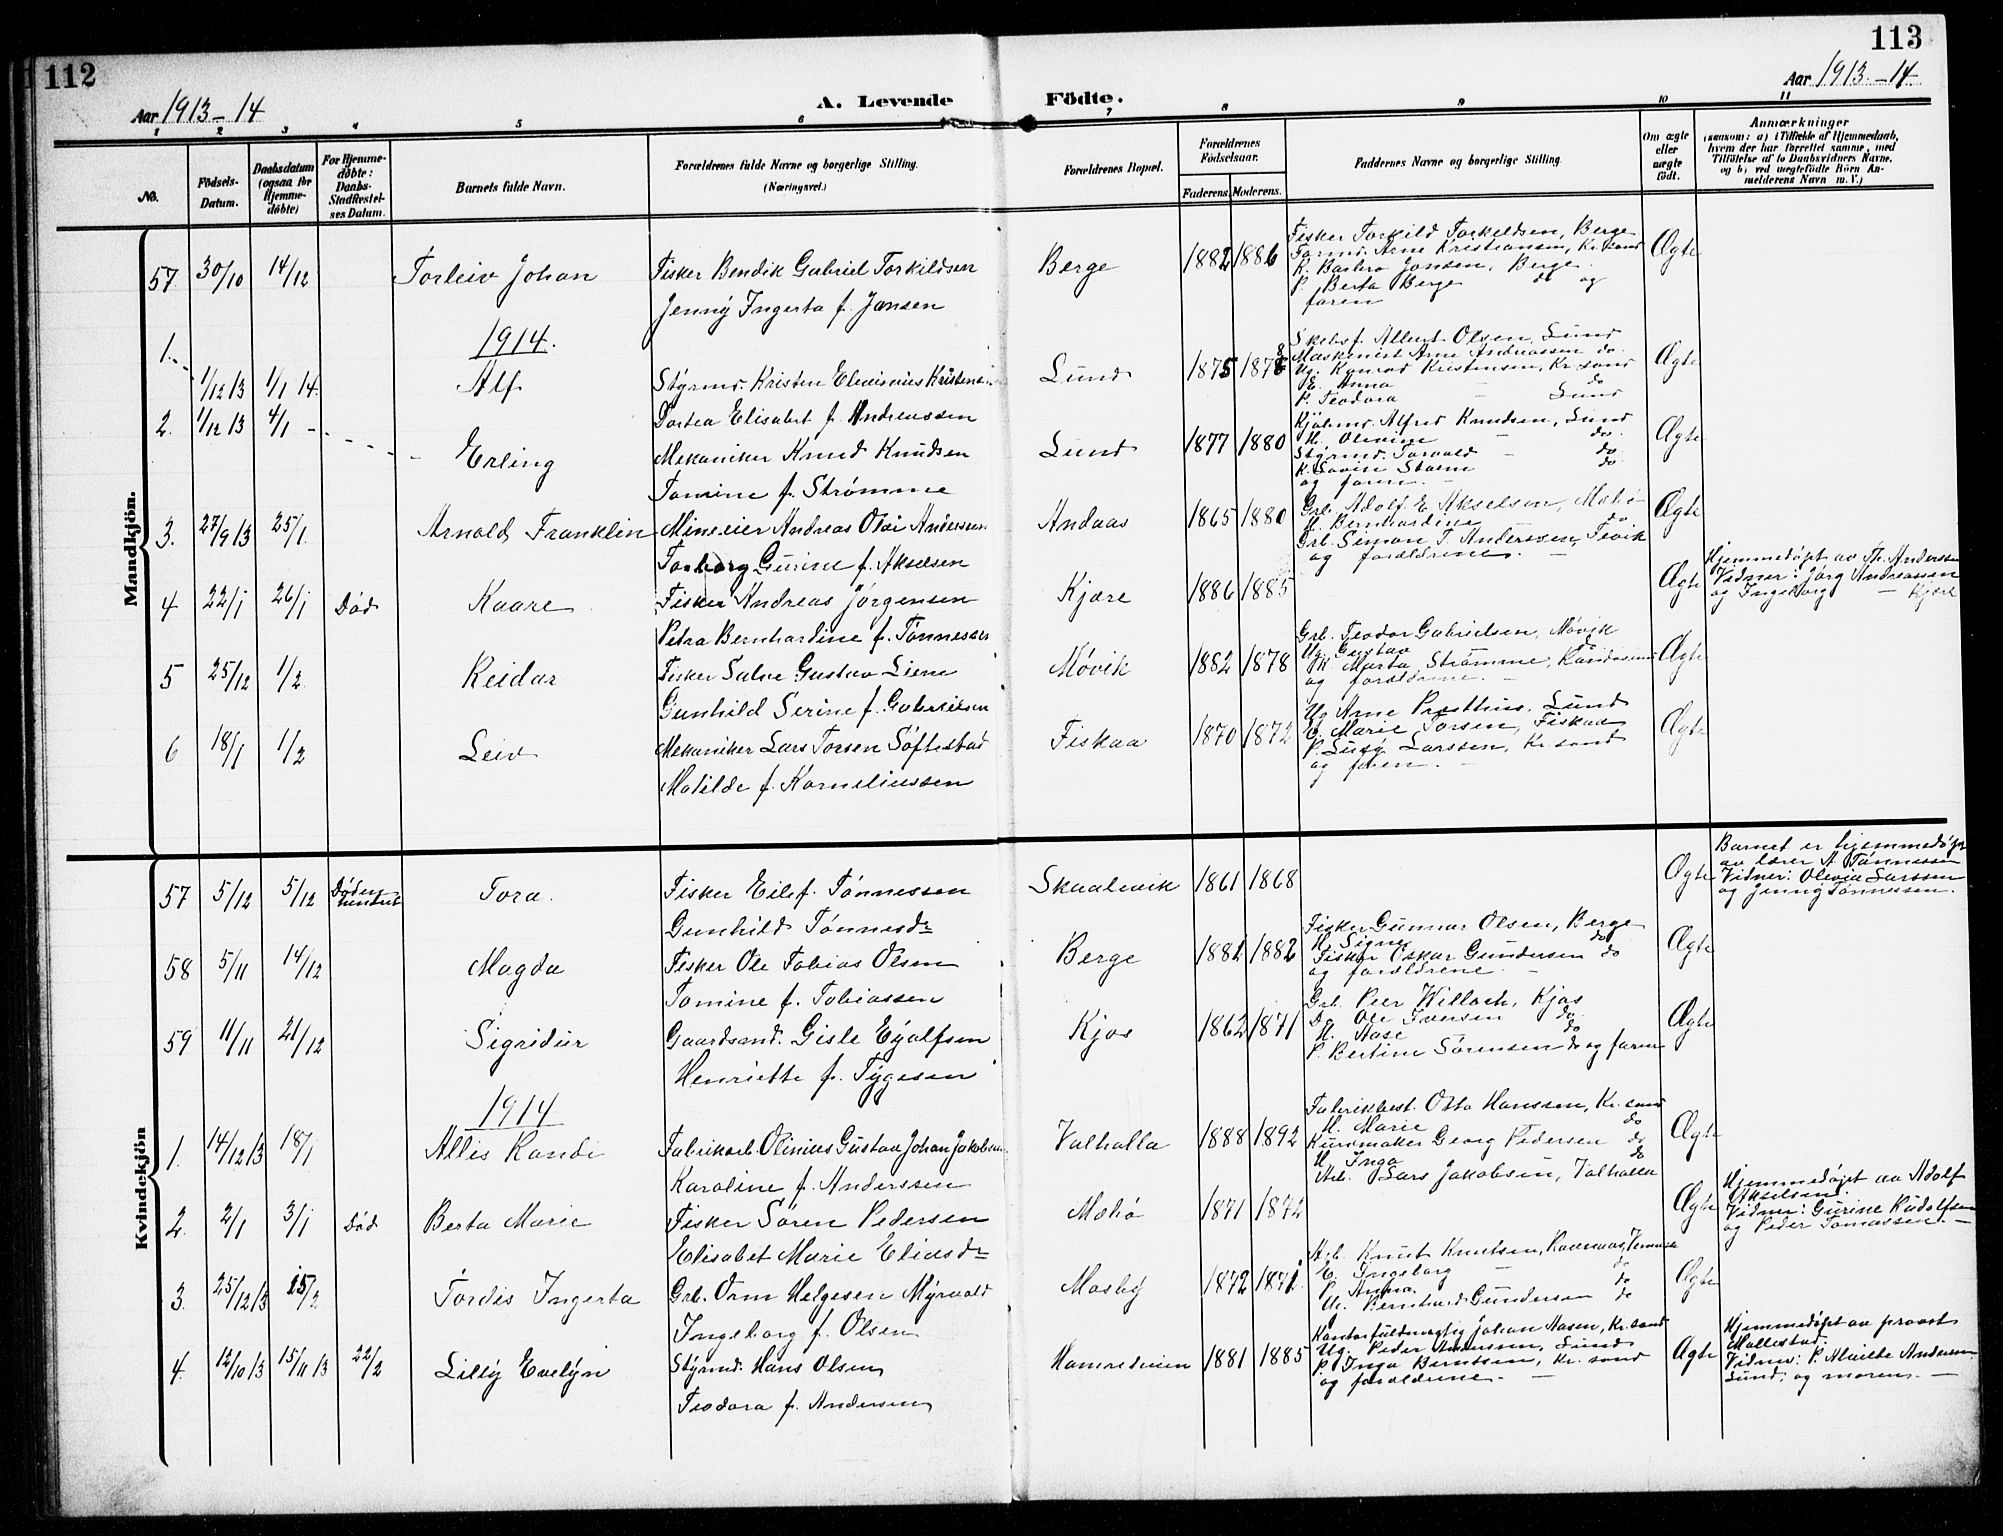 112
113
Aar 1913-14
A. Levende Födte.
Aar 1913-14
1 2 3 4 5 6 7 8 9 10 11
No.
Födsels-Datum.
Daabsdatum (ogsaa for Hjemme-döbte)
For Hjemme-döbte: Daabs-Stadfæstel-ses Datum.
Barnets fulde Navn.
Forældrenes fulde Navne og borgerlige Stilling.
(Næringsvei.)
Forældrenes Bopæl.
Forældrenes Födselsaar.
Faderens. Moderens.
Faddernes Navne og borgerlige Stilling.
Om ægte eller uægte födt.
Anmærkninger
(saasom: a) i Tilfælde af Hjemmedaab,
hvem der har forrettet samme, med
Tilföielse af to Daabsvidners Navne.
og b) ved uægtefödte Börn An-
melderens Navn m. V.)
Mandkjön.
57 30/10 14/12 Torleiv Johan
Fisker Bendik Gabriel Torkildsen
Jenny Ingerta f. Jansen
Berge 1882 1886
Fisker Torkild Torkeldsen, Berge
Farm. Arne Kristiansen, Kr.sand
K. Barbro Jansen, Berge
P. Berta Berge do og
faren
Ægte
1914.
1. 1/12 13 1/1 14. Alf
Styrmd. Kristen Elenisnius Kristens
Dortea Elisabet f. Andreassen
Lund 1875 1878
Skibsf. Albert Olsen, Lund
Maskinist Arne Andreassen do
Ug. Konrad Kristensen, Kr.sand
E. Anna - do
P. Teodora - Lund
Ægte
2. 1/12 13 4/1 - Erling
Mekaniker Knud Knudsen
Tomine f. Strømme
Lund 1877 1880
Kjøbm. Alfred Knudsen, Lund
H. Olevine - do.
Styrmd. Torvald - do
K. Lovise Stoem do
og faren.
Ægte
3. 27/9 13 25/1. Arnold Franklin
Mineeier Andreas Olai Andersen
Torborg Gurine f. Akselsen
Andaas 1865 1880
Grb. Adolf E. Akselsen, Mæbø
H. Bernhardine - do.
Grb. Simon T. Anderssen, Tevik
og forældrene. -
Ægte
4 22/1 26/1 Död Kaare
Fisker Andreas Jörgensen
Petra Bernhardine f. Tönnessen
Kjære 1886 1885
Ægte
Hjemmedøpt av Th. Anderssen
Vidner: Jörg Andreassen
og Ingeborg - Kjære
5 25/12 1/2. Reidar
Fisker Salve Gustav Liene
Gunhild Serine f. Gabrielsen
Møvik 1882 1878
Grb. Teodor Gabrielsen, Møvik
Ug. Gustav do
K. Marta Strømme, Randesund
og forældrene. -
Ægte
6 18/1 1/2 Leiv
Mekaniker Lars Torsen Søftestad
Matilde f. Korneliussen
Fiskaa 1870 1872
Ug. Arne Præsthus, Lund
E. Marie Torsen, Fiskaa
P. Lucy Larssen, Kr.sand
og faren. -
Ægte
Kvindekjön
57 5/12 5/12 Døden indtrut Tora.
Fisker Eilef. Tønnessen
Gunhild Tønnesdr
Skaalevik 1861 1868
Ægte
Barnet er hjemmedøpt
av lærer A. Tønnessen
Vidner: Olevia Larssen
og Jenny Tønnessen.
58 5/11 14/12 Magda
Fisker Ole Tobias Olsen
Tomine f. Tobiassen
Berge 1881 1882
Fisker Gunnar Olsen, Berge
H. Signe do
Fisker Oskar Gundersen do
og forældrene. -
Ægte
59 11/11 21/12 Sigridur
Gaardsmd. Gisle Eyolfsen
Henriette f. Tygesen
Kjos 1862 1871
Grb. Peer Willoch, Kjos
Do Ole Iversen do.
H. Aase do
P. Bertine Sørensen do og faren
Ægte
1914
1. 14/12 13 18/1 Allis Randi
Fabrikarb. Olinius Gustav Johan Jakobsen
Karoline f. Anderssen
Valhalla 1888 1892
Fabrikbest. Otto Hanssen, Kr.sand
H. Marie do
Kurvmaker Georg Pedersen do
H. Inga do
Arb. Lars Jakobsen, Valhalla
Ægte
2. 2/1 3/1 Död Berta Marie
Fisker Søren Pedersen
Elisabet Marie Eliasdr
Mæbø 1871 1872
Ægte
Hjemmedøpt av Adolf
Akselsen.
Vidner: Gurine Rudolfsen
og Peder Tomassen. -
3. 25/12 13 15/2 Tordis Ingerta
Grb. Orm Helgesen Myrvold
Ingeborg f. Olsen
Mosby 1872 1871
Arb. Knut Knutsen,
E. Ingeborg - do
P. Anna. do
Ug. Bernhard Gundersen do
Ægte
4. 12/10 13 15/11 13 22/2 Lilly Evelyn
Styrmd. Hans Olsen
Teodora f. Andersen
Hamresheien 1881 1885
Kontorfuldmegtig Johan Aasen, Kr.sand
Ug. Peder Anderssen, Lund
P. Inga Berntsen, Kr.sand
og forældrene. -
Ægte
Hjemmedøpt av provst
Mollestad.
Vidner: P. Anderssen
Lund, og moren. -